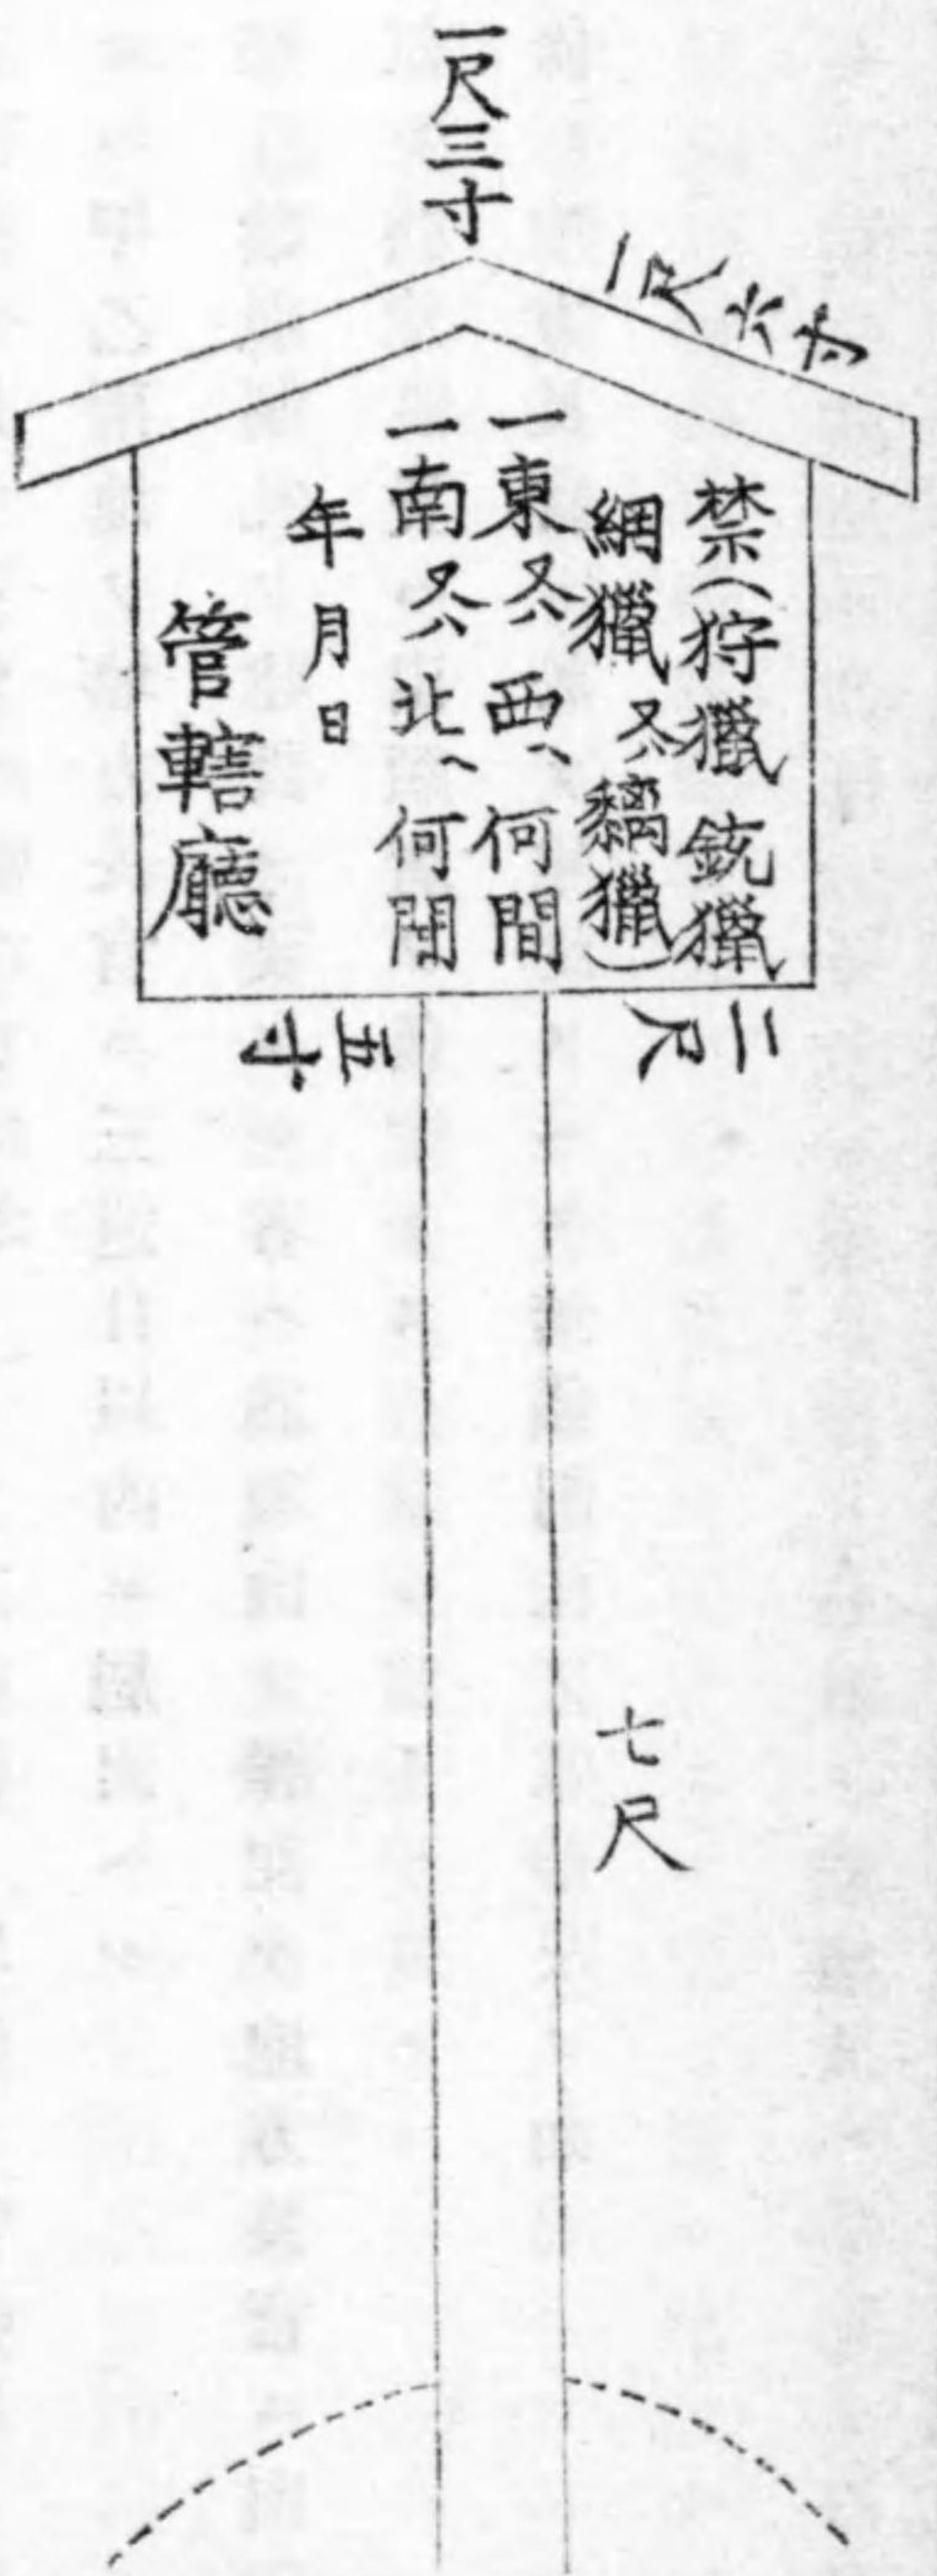 一尺三寸
一尺六寸
禁(狩獵 銃獵
網獵又ハ黐獵)
一東又ハ西ヘ何間
一南又ハ北ヘ何間
年月日
管轄廳
二尺
五寸
七尺